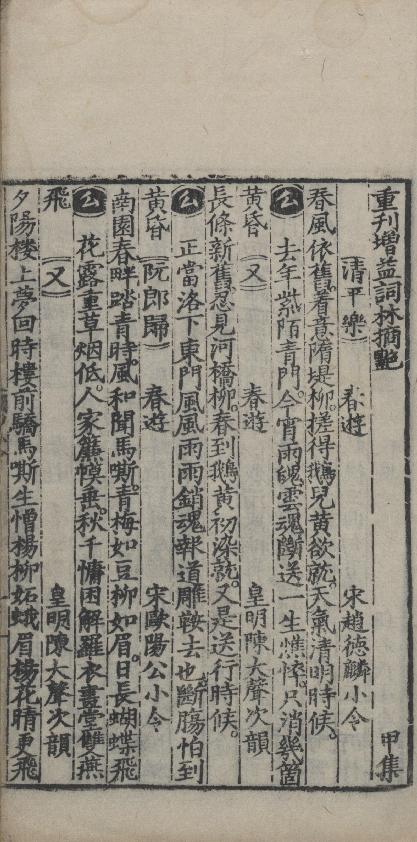 重刊增益詞林摘艷　甲集
清平樂　春遊　宋趙德麟小令
春風依舊着意隋堤柳搓得鵝兒黃欲就天氣清明時候
去年紫陌青門今宵雨魄雲魂斷送一生憔悴只消幾箇
黃昏　又　春遊　皇明陳大聲次韻
長條新舊忍見河橋柳春到鵝黃初染就又是送行時候
正當洛下東門風風雨雨銷魂報道雕鞍去也斷腸怕到
黃昏　阮郎歸　春遊　宋歐陽公小令
南園春畔踏青時風和聞馬嘶青梅如豆柳如眉日長蝴蝶飛
花露重草烟低人家簾幙垂秋千慵困解羅衣畫堂雙燕
飛　又　皇明陳大聲次韻
夕陽樓上夢回時樓前驕馬嘶生憎楊柳妬蛾眉楊花晴更飛